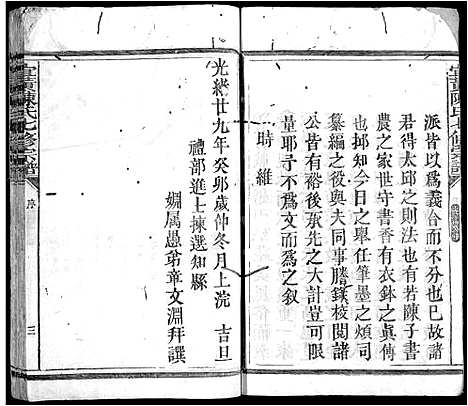 宜黄陳氏七修宗譜
派皆以為義合而不分也故諸
君得太邱之則法也有若陳子書
農之家世守書香有衣鉢之真傳
也抑又知今日之舉任筆墨之煩司
纂編之役與夫同事謄錄校閲諸
公皆有裕後承先之大計豈可限
量耶予不為文而為之叙
時維
光緒廿九年癸夘歲仲冬月上浣 吉旦
禮部進士揀選知縣
姻属愚弟章文淵拜譔
宜黄陳氏七修宗譜
序
三